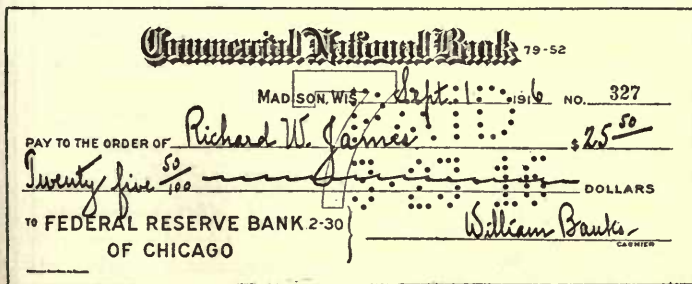 Commercial National Bank 79-52
MADISON, WIS. Sept. 1 1916 NO. 327
PAY TO THE ORDER OF Richard W. James $25 50
Twenty five 50/100 DOLLARS
TO FEDERAL RESERVE BANK 2-30
OF CHICAGO
William Banks
CASHIER